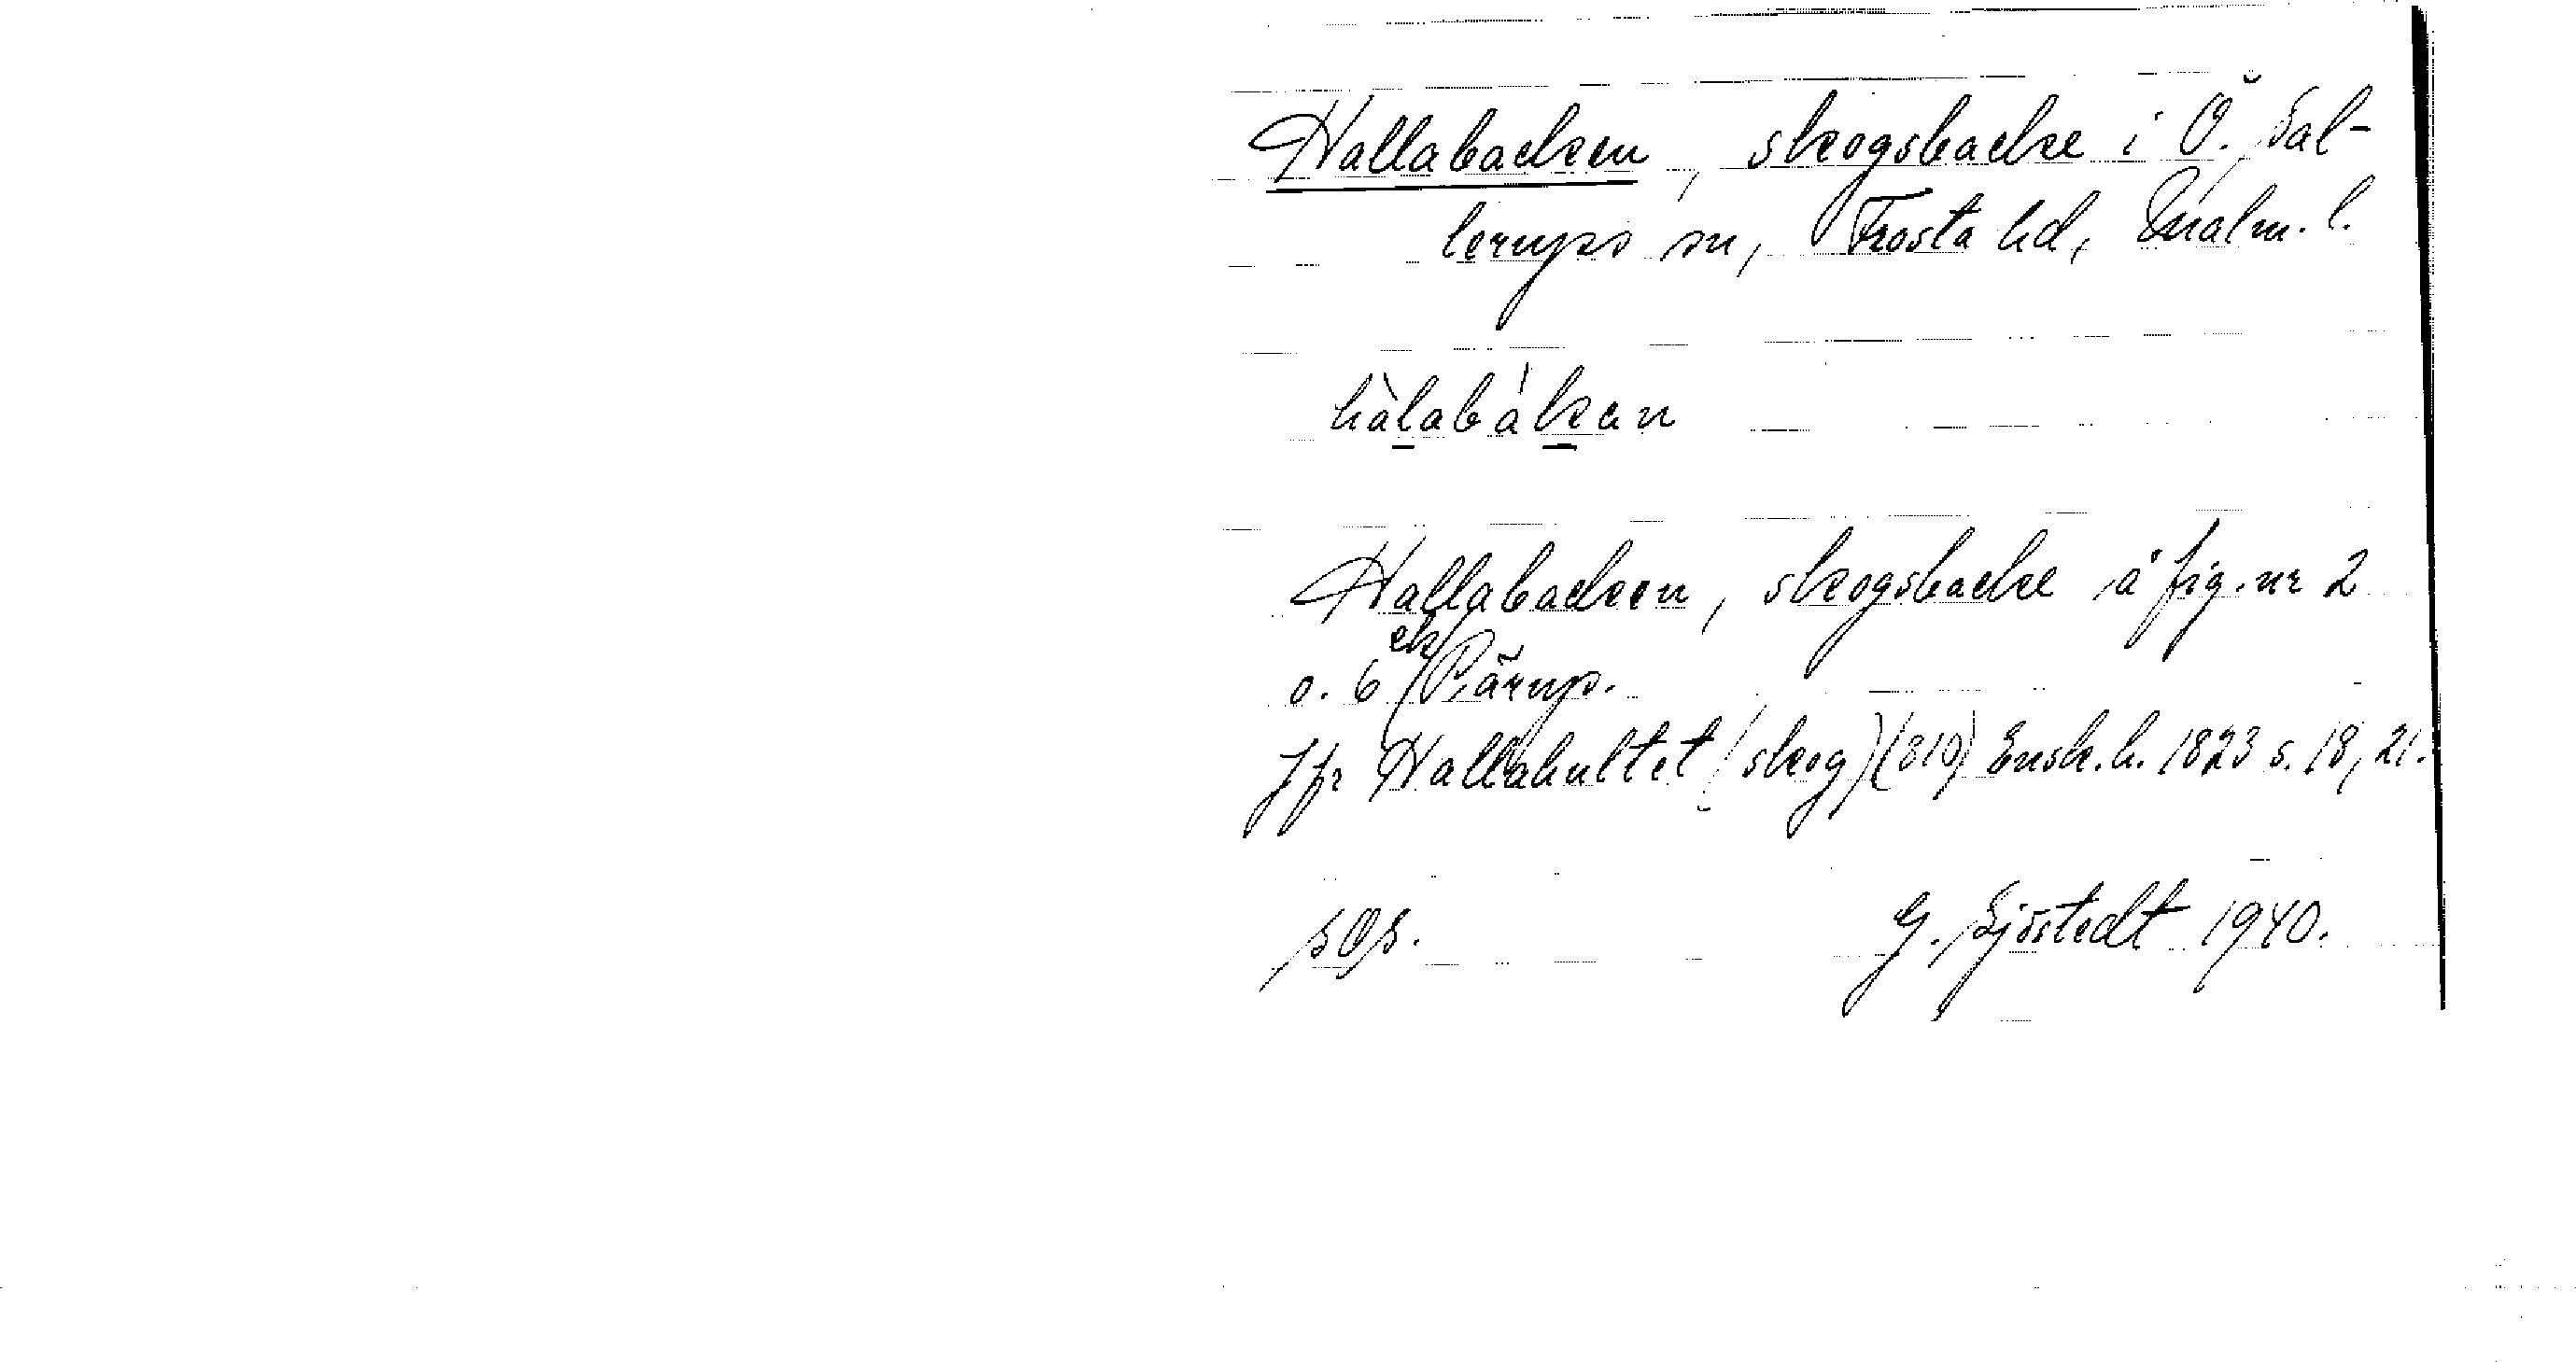 Hallabacken, skogsbacke i Ö. Sal-
lerups sn, Frosta hd, Malm. l.
hàlabákan
Hallabacken, skogsbacke å fig. nr 2
o. 6 Pärup.
Jfr Hallahultet (skog) (810) Ensk. h. 1823 s. 18, 21.
sOs. G. Sjöstedt 1940.